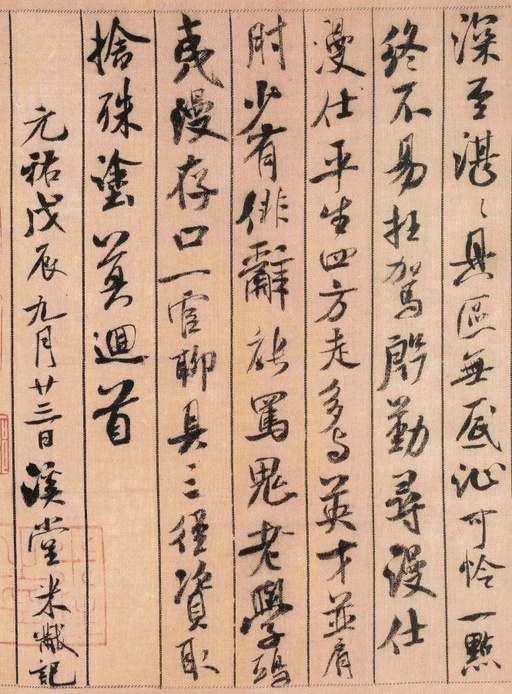 深至湛々具區無底沚可怜一點
終不易枉駕殷勤尋漫仕
漫仕平生四方走多与英才並肩
肘少有俳辭能罵鬼老學鴟
夷漫存口一官聊具三徑資取
捨殊塗莫迴首
元祐戊辰九月廿三日溪堂米黻記